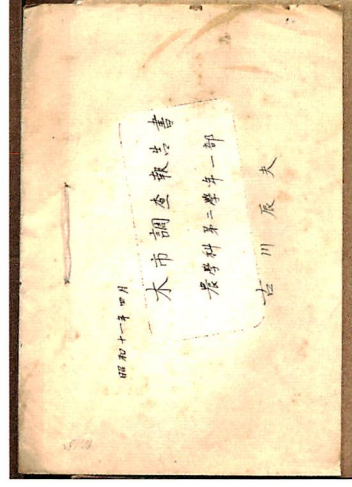 昭和十一年四月
木市調査報告書
農學科第二學年一部
古川辰夫